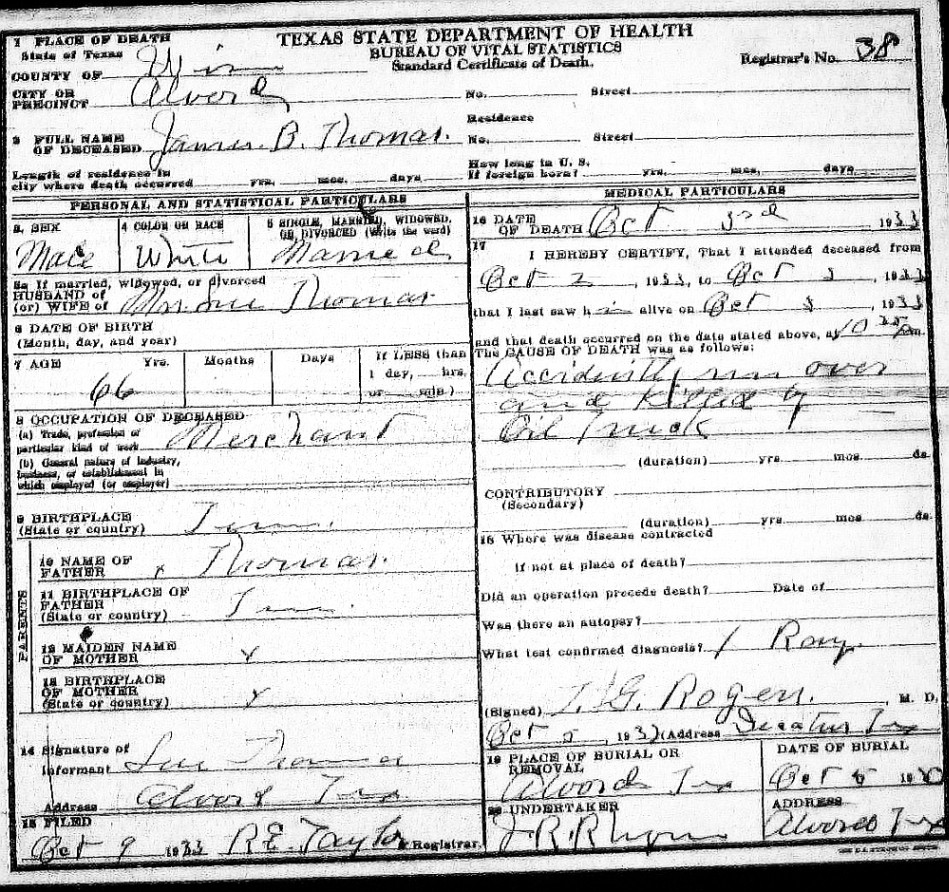 TEXAS STATE DEPARTMENT OF HEALTH
BUREAU OF VITAL STATISTICS
Standard Certificate of Death.
Registrar's No. 38
1 PLACE OF DEATH
State of Texas
COUNTY OF
CITY OR PRECINCT Alvord
No. Street
Residence
2 FULL NAME OF DECEASED James B. Thomas.
No. Street
Length of residence in city where death occurred yrs. mos. days
How long in U. S. If foreign born? yrs. mos. days
PERSONAL AND STATISTICAL PARTICULARS
3 SEX Male
4 COLOR OR RACE White
5 SINGLE, MARRIED, WIDOWED, OR DIVORCED (Write the word) Married
5a If married, widowed, or divorced
HUSBAND of (or) WIFE of Thomas
6 DATE OF BIRTH
(Month, day, and year)
7 AGE Yrs. Months Days If LESS than 1 day, hrs. or min.)
66
8 OCCUPATION OF DECEASED
(a) Trade, profession of particular kind of work Merchant
(b) General nature of industry, business, or establishment in which employed (or employer)
9 BIRTHPLACE
(State or country) Tenn.
PARENTS
10 NAME OF FATHER x Thomas.
11 BIRTHPLACE OF FATHER
(State or country) Tenn.
12 MAIDEN NAME OF MOTHER x
13 BIRTHPLACE OF MOTHER
(State or country) x
14 Signature of Informant Thomas
Address Alvord Tex
15 FILED
Oct 9 1933 R.E. Taylor Registrar.
MEDICAL PARTICULARS
16 DATE OF DEATH Oct 3rd 1933
17 I HEREBY CERTIFY, That I attended deceased from
Oct 2, 1933, to Oct 3, 1933
that I last saw h im alive on Oct 3, 1933
and that death occurred on the date stated above, at 10 pm.
The CAUSE OF DEATH was as follows:
Accidently run over
and killed by
Oil Truck
(duration) yrs. mos. ds.
CONTRIBUTORY
(Secondary)
(duration) yrs. mos. ds.
18 Where was disease contracted
if not at place of death?
Did an operation precede death? Date of
Was there an autopsy?
What test confirmed diagnosis? Ray
(Signed) Rogers, M. D.
Oct 5, 193 (Address Decatur Tex
19 PLACE OF BURIAL OR REMOVAL
Alvord Tex
DATE OF BURIAL
Oct 19
20 UNDERTAKER
J.R.
ADDRESS
Alvord Tex